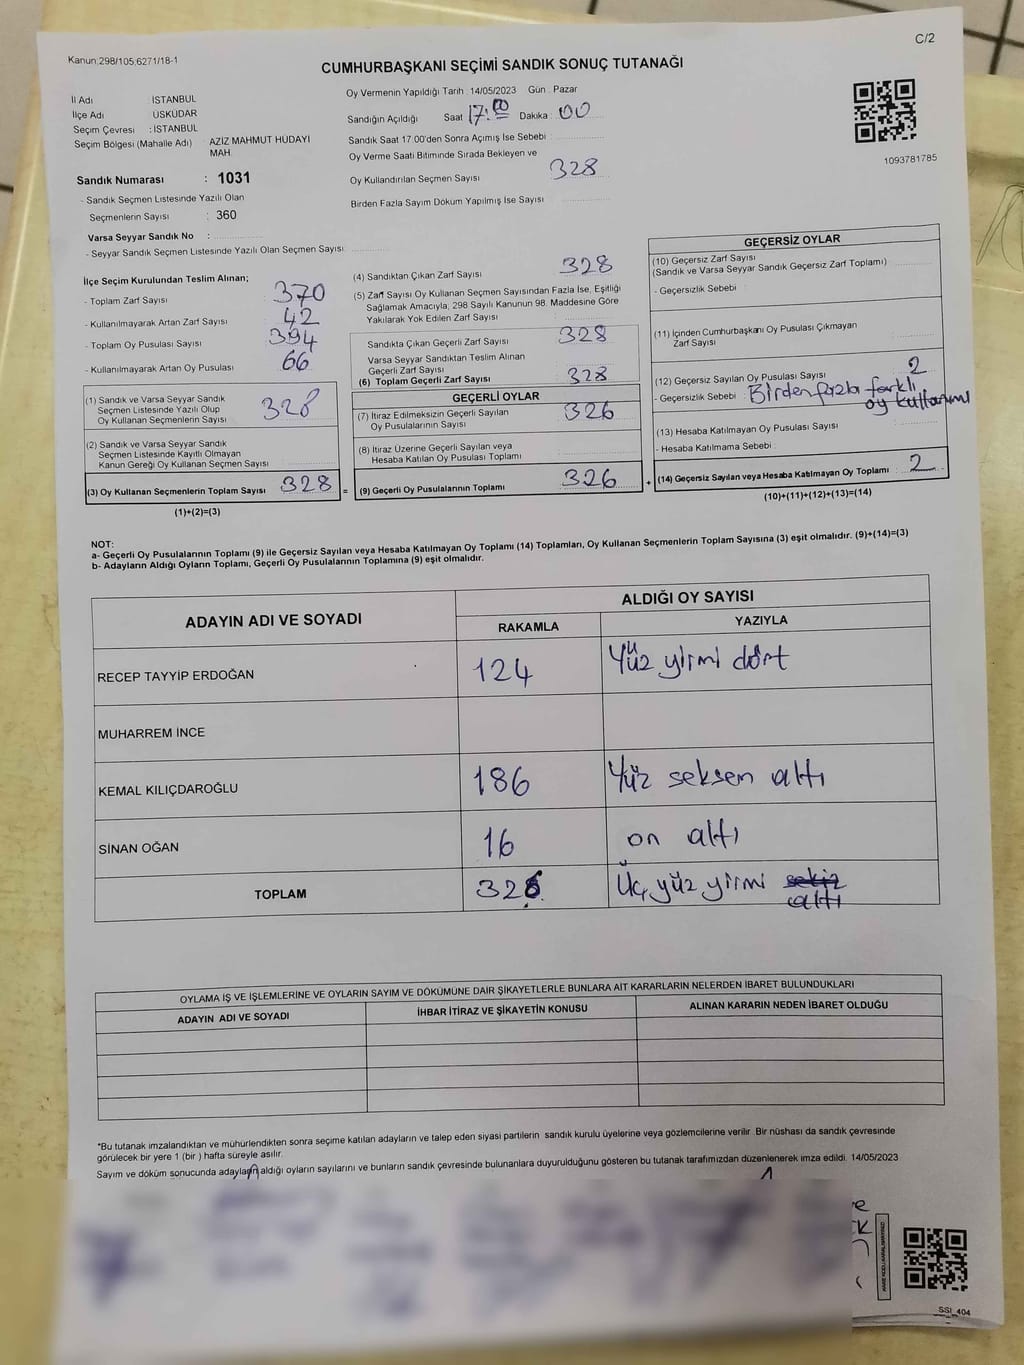 C/2
Kanun;298/105,6271/18-1
CUMHURBAŞKANI SEÇİMİ SANDIK SONUÇ TUTANAĞI
İl Adı : İSTANBUL
İlçe Adı : ÜSKÜDAR
Seçim Çevresi : İSTANBUL
Seçim Bölgesi (Mahalle Adı) AZİZ MAHMUT HÜDAYİ
MAH.
Sandık Numarası : 1031
- Sandık Seçmen Listesinde Yazılı Olan
Seçmenlerin Sayısı : 360
Varsa Seyyar Sandık No :
- Seyyar Sandık Seçmen Listesinde Yazılı Olan Seçmen Sayısı:
Oy Vermenin Yapıldığı Tarih : 14/05/2023 Gün : Pazar
Sandığın Açıldığı Saat 17:00 Dakika : 00
Sandık Saat 17.00'den Sonra Açımış İse Sebebi :
Oy Verme Saati Bitiminde Sırada Bekleyen ve
Oy Kullandırılan Seçmen Sayısı 328
Birden Fazla Sayım Döküm Yapılmış İse Sayısı
1093781785
İlçe Seçim Kurulundan Teslim Alınan;
- Toplam Zarf Sayısı 370
- Kullanılmayarak Artan Zarf Sayısı 42
- Toplam Oy Pusulası Sayısı 394
- Kullanılmayarak Artan Oy Pusulası 66
(1) Sandık ve Varsa Seyyar Sandık
Seçmen Listesinde Yazılı Olup
Oy Kullanan Seçmenlerin Sayısı 328
(2) Sandık ve Varsa Seyyar Sandık
Seçmen Listesinde Kayıtlı Olmayan
Kanun Gereği Oy Kullanan Seçmen Sayısı
(3) Oy Kullanan Seçmenlerin Toplam Sayısı 328 =
(1)+(2)=(3)
(4) Sandıktan Çıkan Zarf Sayısı 328
(5) Zarf Sayısı Oy Kullanan Seçmen Sayısından Fazla İse, Eşitliği
Sağlamak Amacıyla, 298 Sayılı Kanunun 98. Maddesine Göre
Yakılarak Yok Edilen Zarf Sayısı :
Sandıkta Çıkan Geçerli Zarf Sayısı 328
Varsa Seyyar Sandıktan Teslim Alınan
Geçerli Zarf Sayısı
(6) Toplam Geçerli Zarf Sayısı 328
GEÇERLİ OYLAR
(7) İtiraz Edilmeksizin Geçerli Sayılan
Oy Pusulalarının Sayısı 326
(8) İtiraz Üzerine Geçerli Sayılan veya
Hesaba Katılan Oy Pusulası Toplamı
(9) Geçerli Oy Pusulalarının Toplamı 326 +
GEÇERSİZ OYLAR
(10) Geçersiz Zarf Sayısı
(Sandık ve Varsa Seyyar Sandık Geçersiz Zarf Toplamı)
- Geçersizlik Sebebi :
(11) İçinden Cumhurbaşkanı Oy Pusulası Çıkmayan
Zarf Sayısı
(12) Geçersiz Sayılan Oy Pusulası Sayısı 2
- Geçersizlik Sebebi : Birden fazla farklı
oy kullanımı
(13) Hesaba Katılmayan Oy Pusulası Sayısı
- Hesaba Katılmama Sebebi :
(14) Geçersiz Sayılan veya Hesaba Katılmayan Oy Toplamı : 2
(10)+(11)+(12)+(13)=(14)
NOT:
a- Geçerli Oy Pusulalarının Toplamı (9) ile Geçersiz Sayılan veya Hesaba Katılmayan Oy Toplamı (14) Toplamları, Oy Kullanan Seçmenlerin Toplam Sayısına (3) eşit olmalıdır. (9)+(14)=(3)
b- Adayların Aldığı Oyların Toplamı, Geçerli Oy Pusulalarının Toplamına (9) eşit olmalıdır.
ADAYIN ADI VE SOYADI
ALDIĞI OY SAYISI
RAKAMLA YAZIYLA
RECEP TAYYİP ERDOĞAN 124 Yüz yirmi dört
MUHARREM İNCE
KEMAL KILIÇDAROĞLU 186 Yüz seksen altı
SİNAN OĞAN 16 on altı
TOPLAM 326 Üç yüz yirmi sekiz
altı
OYLAMA İŞ VE İŞLEMLERİNE VE OYLARIN SAYIM VE DÖKÜMÜNE DAİR ŞİKAYETLERLE BUNLARA AİT KARARLARIN NELERDEN İBARET BULUNDUKLARI
ADAYIN ADI VE SOYADI İHBAR İTİRAZ VE ŞİKAYETİN KONUSU ALINAN KARARIN NEDEN İBARET OLDUĞU
*Bu tutanak imzalandıktan ve mühürlendikten sonra seçime katılan adayların ve talep eden siyasi partilerin sandık kurulu üyelerine veya gözlemcilerine verilir. Bir nüshası da sandık çevresinde
görülecek bir yere 1 (bir ) hafta süreyle asılır.
Sayım ve döküm sonucunda adayların aldığı oyların sayılarını ve bunların sandık çevresinde bulunanlara duyurulduğunu gösteren bu tutanak tarafımızdan düzenlenerek imza edildi. 14/05/2023
SSI_404